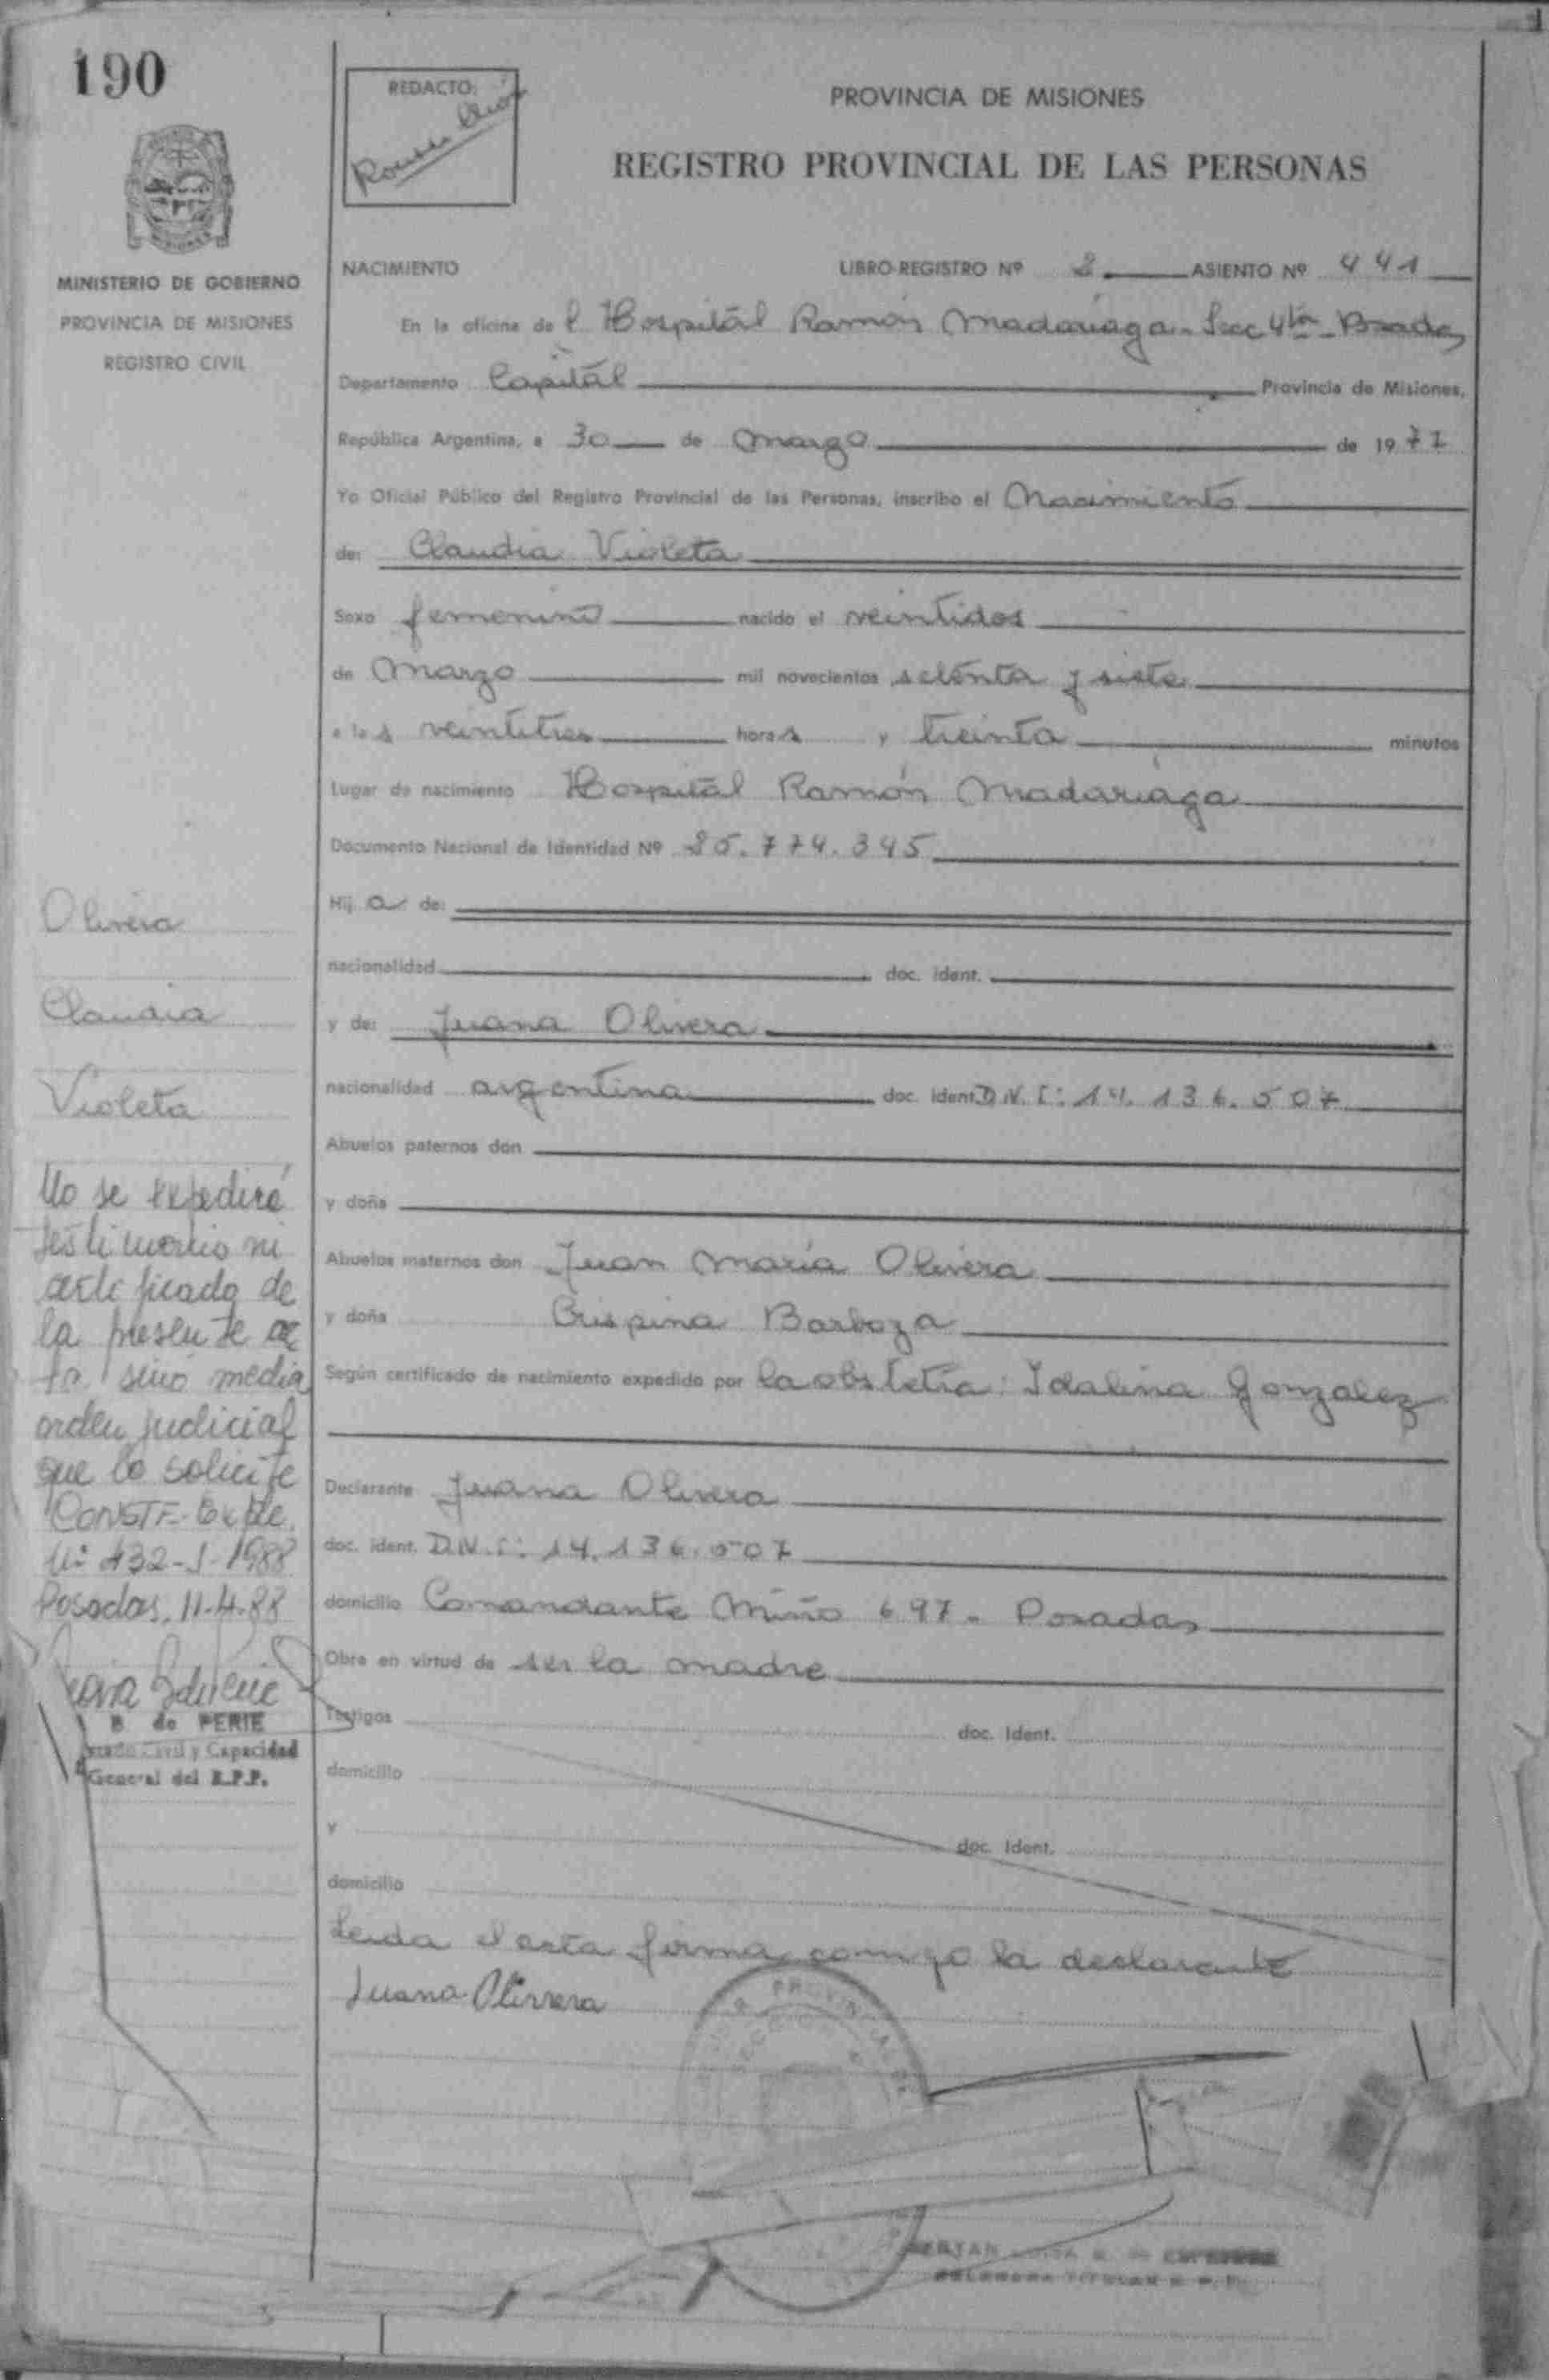 190
REDACTO:
PROVINCIA DE MISIONES
REGISTRO PROVINCIAL DE LAS PERSONAS
MINISTERIO DE GOBIERNO
PROVINCIA DE MISIONES
REGISTRO CIVIL
NACIMIENTO LIBRO-REGISTRO Nº 2 ASIENTO Nº 441
En la oficina del Hospitál Ramón Madariaga - Secc 4ta - Posadas
Departamento Capitál Provincia de Misiones,
República Argentina, a 30 de marzo de 1977
Yo Oficial Público del Registro Provincial de las Personas, inscribo el Nacimiento
de: Claudia Violeta
Sexo femenino nacido el veintidos
de Marzo mil novecientos setenta y siete
a las veintitres horas y treinta minutos
Lugar de nacimiento Hospitál Ramón Madariaga
Documento Nacional de Identidad Nº 25.774.345
Hij a de:
nacionalidad doc. ident.
y de: Juana Olivera
nacionalidad argentina doc. ident. D.N.I: 14.136.507
Abuelos paternos don
y doña
Abuelos maternos don Juan María Olivera
y doña Crispina Barboza
Según certificado de nacimiento expedido por la obstetra: Idalina Gonzalez
Declarante Juana Olivera
doc. ident. D.N.I: 14.136.507
domicilio Comandante Miño 697 - Posadas
Obra en virtud de ser la madre
Testigos doc. Ident.
domicilio
y doc. Ident.
domicilio
Leida el acta firma conmigo la declarante
Juana Olivera
Olivera
Claudia
Violeta
No se expedirá
testimonio ni
certificado de
la presente ac
ta sinó media
orden judicial
que lo solicite
CONSTE - Expte.
Nº 432-J-1988
Posadas, 11-4-88
B de PERIE
Estado Civil y Capacidad
General del R.P.P.